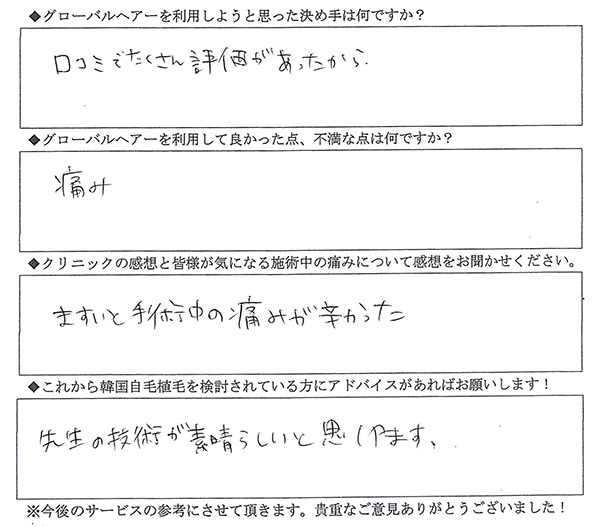 ◆グローバルヘアーを利用しようと思った決め手は何ですか？
口コミでたくさん評価があったから
◆グローバルヘアーを利用して良かった点、不満な点は何ですか？
痛み
◆クリニックの感想と皆様が気になる施術中の痛みについて感想をお聞かせください。
ますいと手術中の痛みが辛かった
◆これから韓国自毛植毛を検討されている方にアドバイスがあればお願いします！
先生の技術が素晴らしいと思います、
※今後のサービスの参考にさせて頂きます。貴重なご意見ありがとうございました！